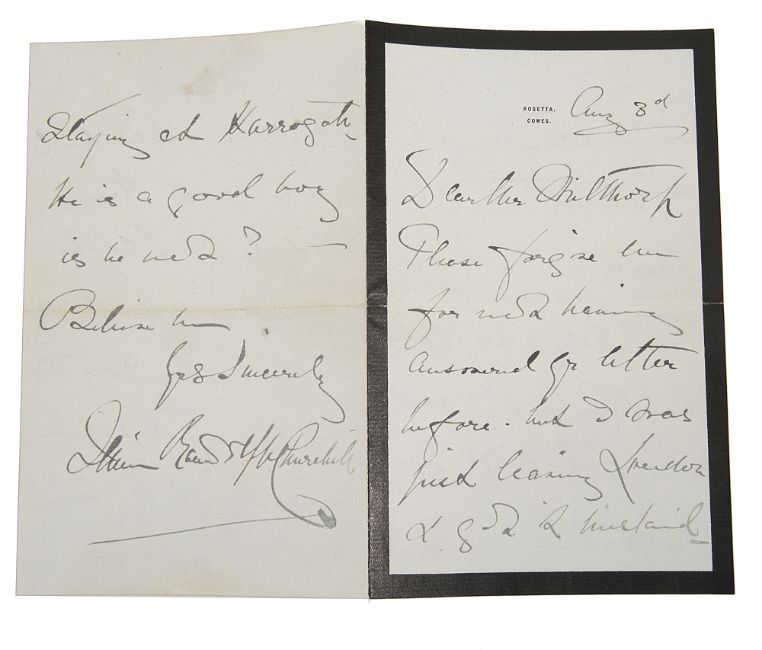 ROSETTA,
COWES.
Aug 3d
Dear Mr Milthorp
Please forgive me
for not having
answered yr letter
before. but I was
just leaving London
& got it mislaid
Staying at Harrogate
He is a good boy
is he not? —
Believe me
Yrs Sincerely
Jennie Randolph Churchill